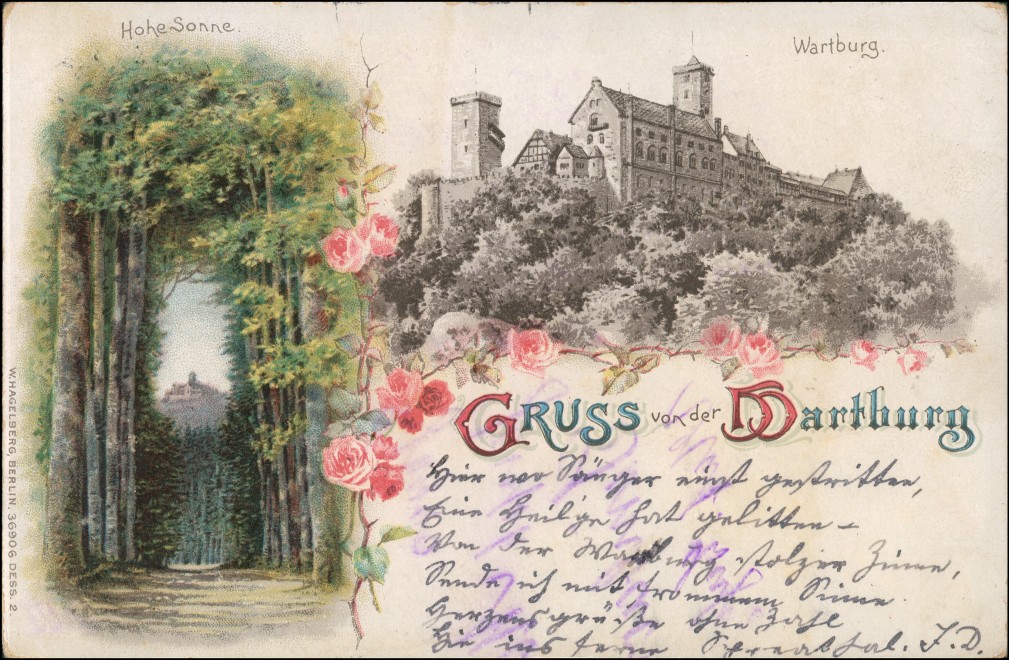 Hohe Sonne.
Wartburg.
GRUSS von der Wartburg
Hier wo Sänger einst gestritten,
Eine Heilge hat gelitten –
Von der Warburg stolzer Zinne,
Sende ich mit frommem Sinne
Herzensgrüße ohne Zahl
Hie ins ferne Spreethal. J. D.
W. HAGELBERG, BERLIN. 36906 DESS. 2.